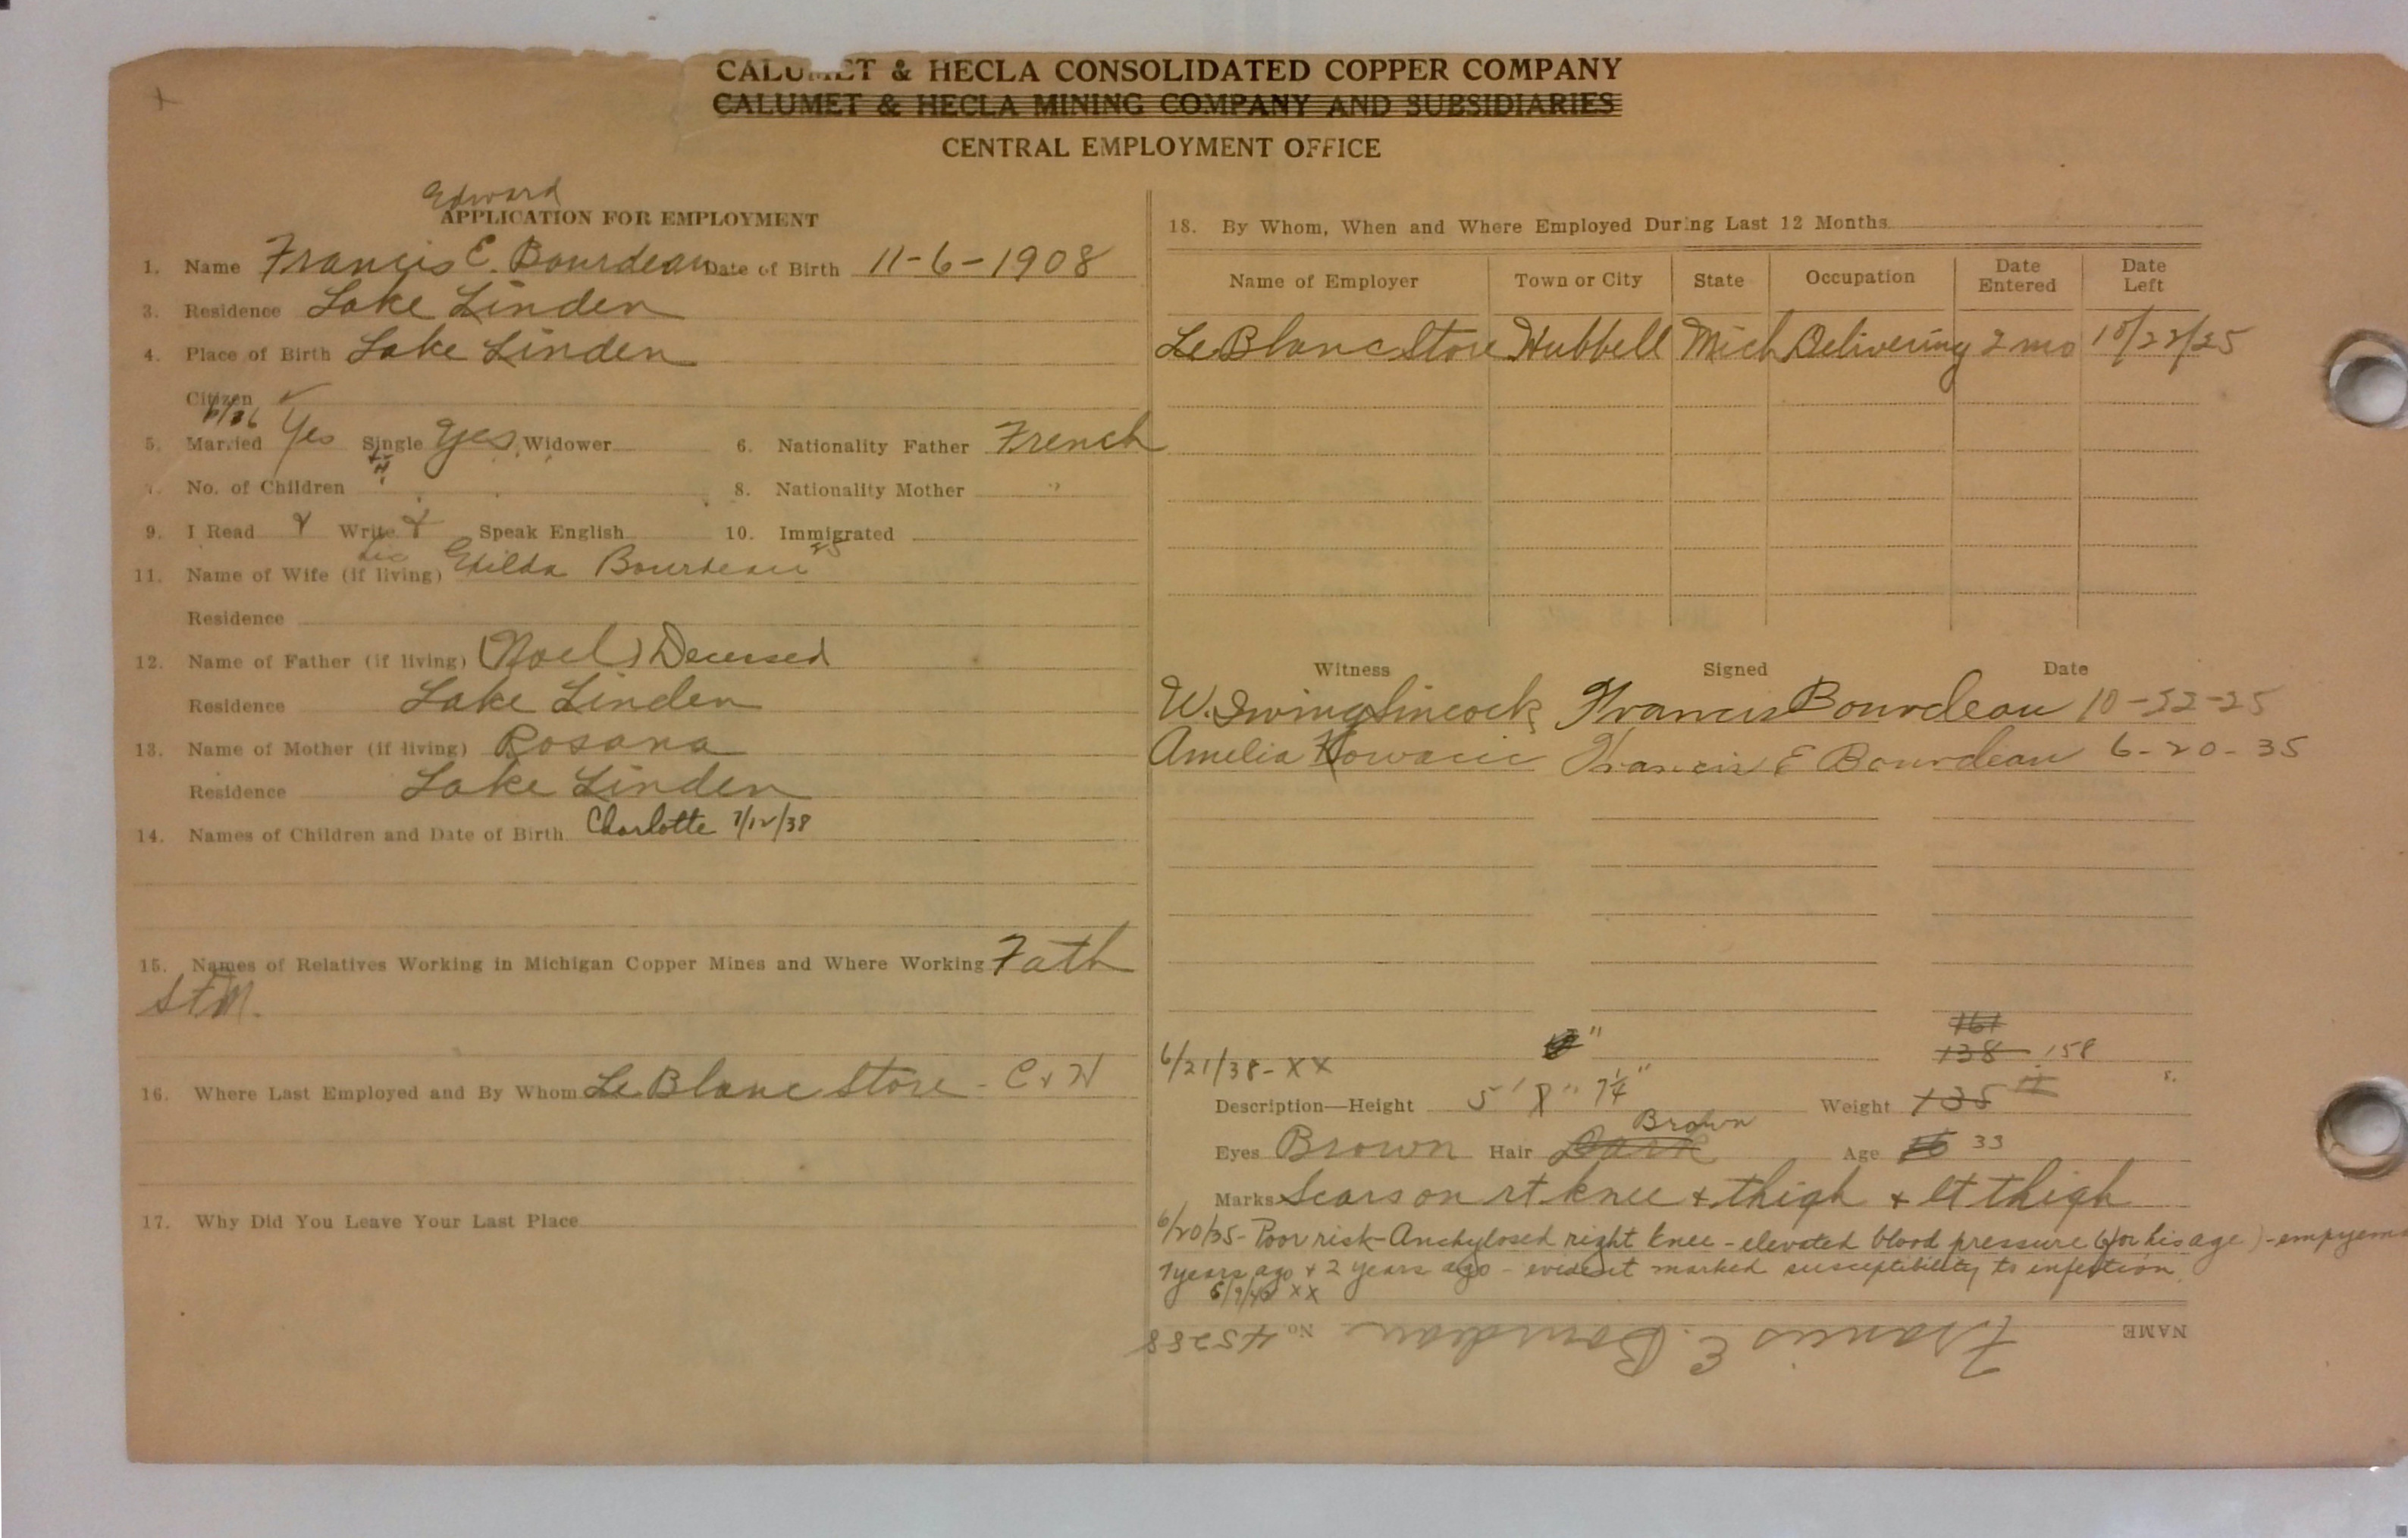 CALUMET & HECLA CONSOLIDATED COPPER COMPANY
CALUMET & HECLA MINING COMPANY AND SUBSIDIARIES
CENTRAL EMPLOYMENT OFFICE
Edward
APPLICATION FOR EMPLOYMENT
1. Name Francis E. Bourdeau Date of Birth 11-6-1908
3. Residence Lake Linden
4. Place of Birth Lake Linden
Citizen ✓
6/36
5. Married Yes Single yes Widower 6. Nationality Father French
7. No. of Children 8. Nationality Mother "
9. I Read Write Speak English 10. Immigrated
11. Name of Wife (if living) Edilda Bourdeau
Residence
12. Name of Father (if living) (Noel) Decessed
Residence Lake Linden
13. Name of Mother (if living) Rosana
Residence Lake Linden
14. Names of Children and Date of Birth Charlotte 7/12/38
15. Names of Relatives Working in Michigan Copper Mines and Where Working Fath
St M.
16. Where Last Employed and By Whom Le Blanc Store - C & H
17. Why Did You Leave Your Last Place
18. By Whom, When and Where Employed During Last 12 Months
Name of Employer Town or City State Occupation Date Entered Date Left
Le Blanc Store Hubbell Mich Delivering 2 mo 10/22/25
Witness Signed Date
W. Irving Sincock Francis Bourdeau 10-22-25
Amelia Francis E Bourdeau 6-20-35
161
6/21/38 - XX 138 158
Description—Height 5' 8" 7¼" Weight 135
Brown
Eyes Brown Hair Dark Age 16 33
Marks Scars on rt knee & thigh & lt thigh
6/20/35 - Poor risk - Anchylosed right knee - elevated blood pressure (for his age) - empyema
7 years ago & 2 years ago - evident marked susceptibility to infection
XX
NAME Francis E. Bourdeau No 45288